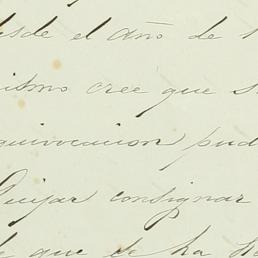 desde el año de 1
mismo cree que s
equivocacion pud
Quijar consignar
que se ha